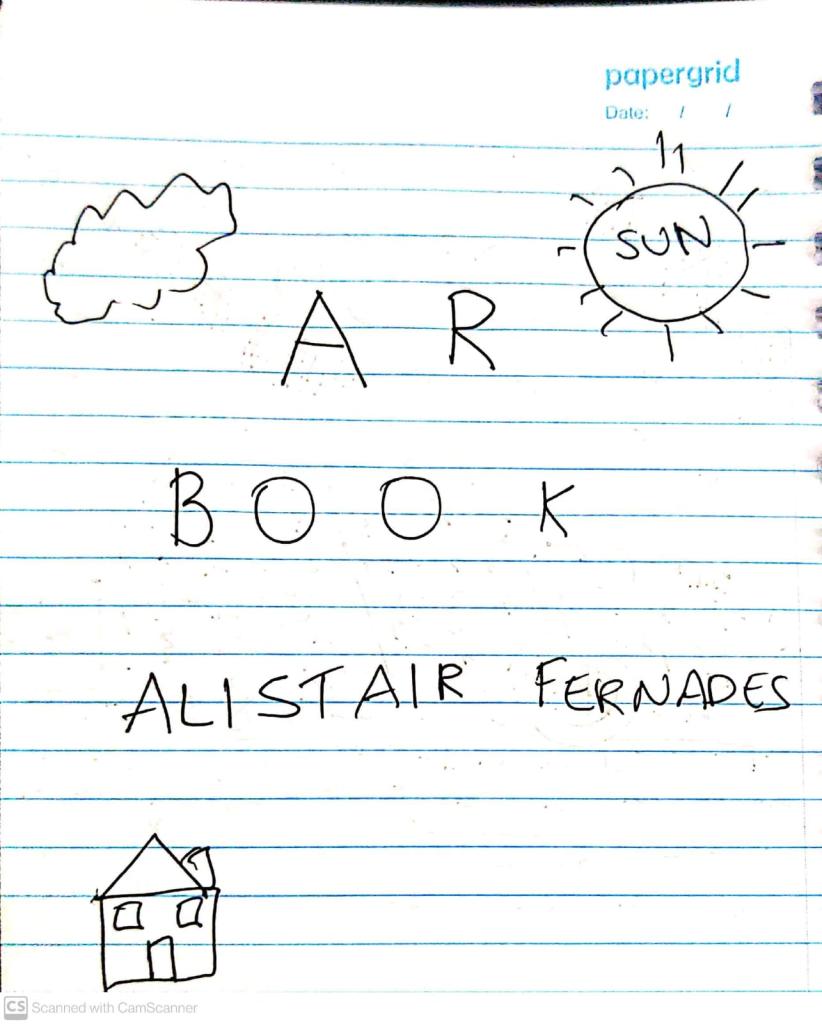 papergrid
Date: / /
SUN
A R
B O O K
ALISTAIR FERNADES
CS Scanned with CamScanner